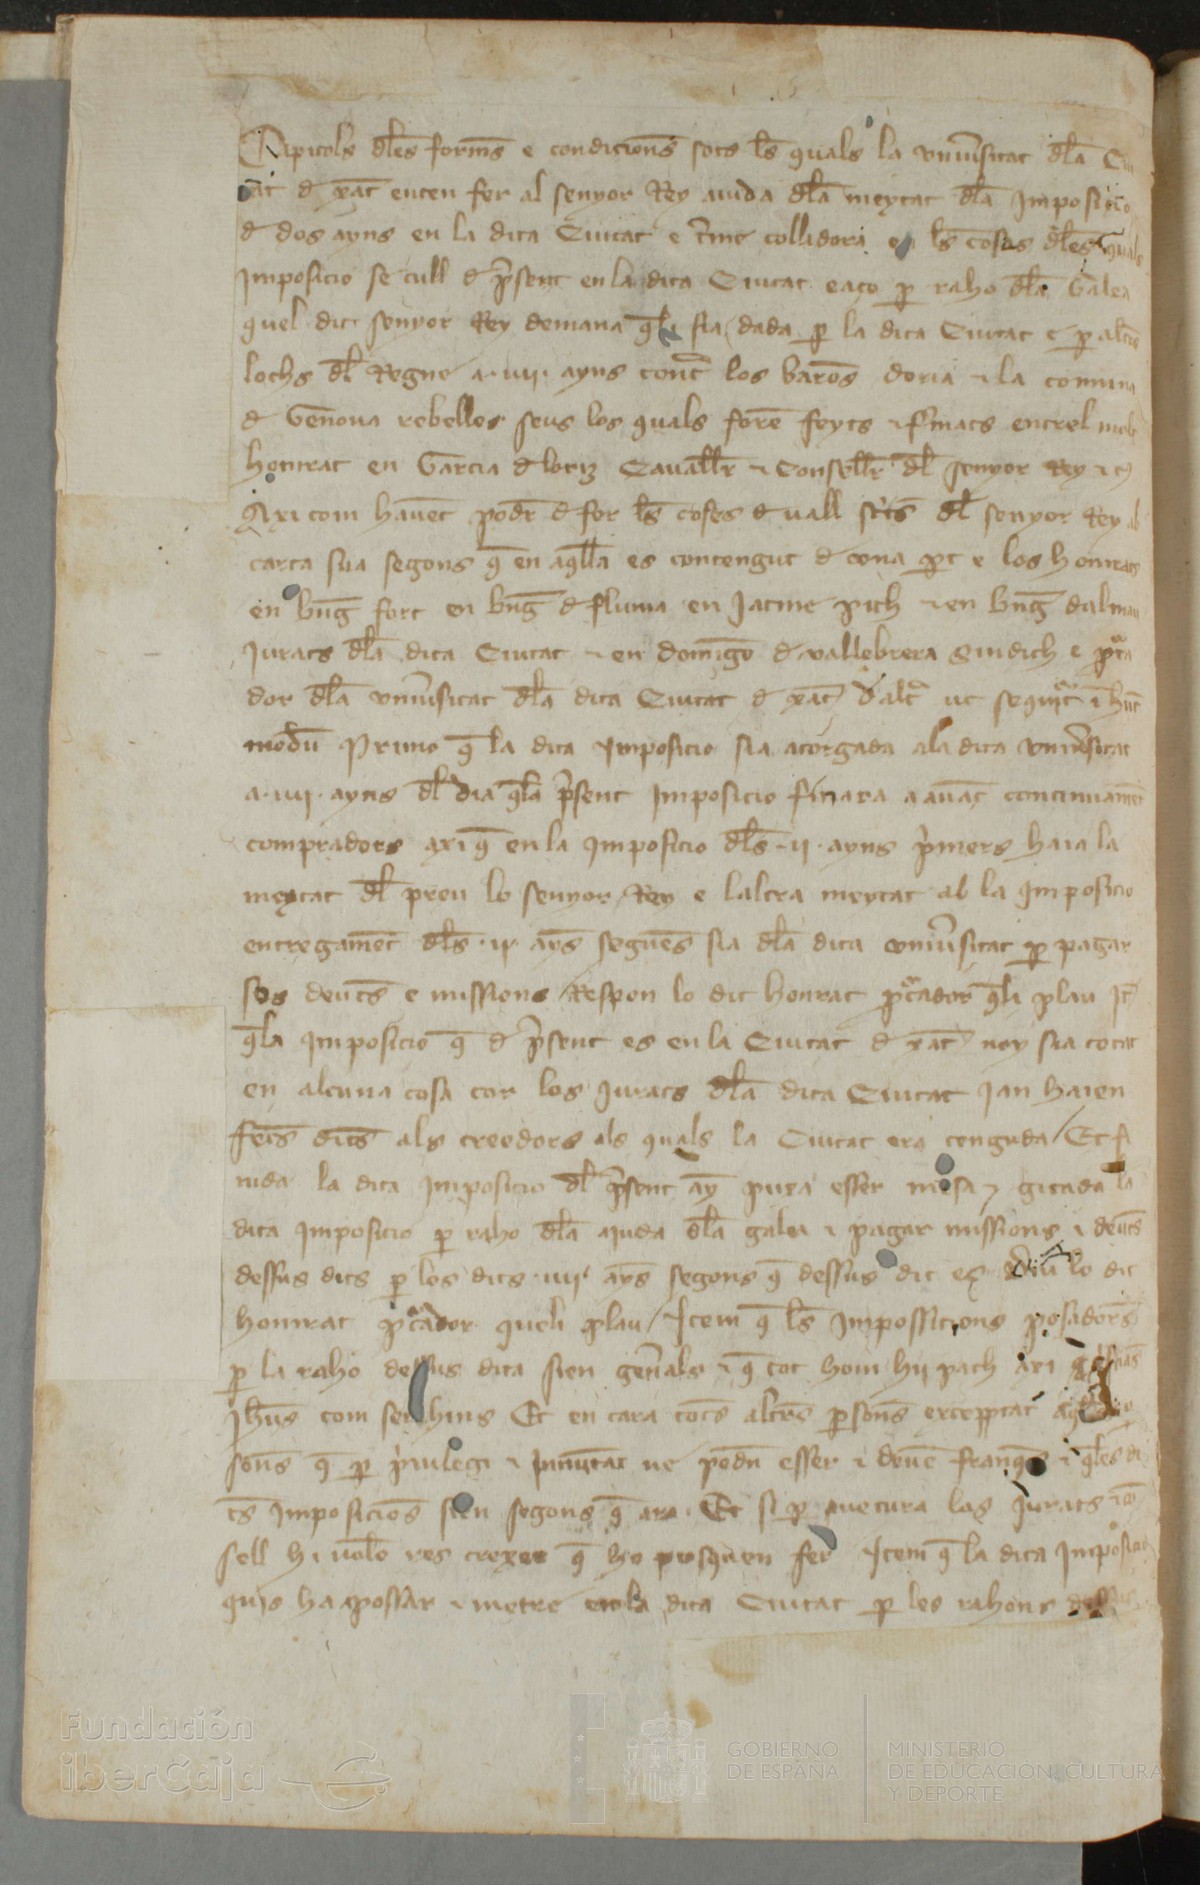 Capitols dles forms e condicions sots ls quals la vniusitat dla Ciu
tat d xat enten fer al senyor Rey aiuda dla meytat dla Imposicio
d dos ayns en la dita Ciutat e tme collidora en ls coses dles quals
Imposicio se cull d psent en la dita Ciutat eaço p raho dla Galea
quel dit senyor Rey demana qli sia dada p la dita Ciutat e p altres
lochs dl Regne a ·iiii· ayns cont los barons doria e la comuna
d Genoua rebelles seus los quals foren feyts e fmats entrel
honrat en Garcia d loriz Cauallr e Consellr dl senyor Rey e
Axi com hauent podr d fer ls coses d uall scites dl senyor Rey ab
carta sua segons q en aqlla es contengut d vna pt e los honrats
en bng fort en bng d fluuia en Jacme pich e en bng dalmau
Jurats dla dita Ciutat e en domingo d vallebrera Sindich e pca
dor dla vniusitat dla dita Ciutat d xat d alt ut sequit i hunc
modu Primo q la dita Imposicio sia atorgada ala dita vniusitat
a ·iiii· ayns dl dia qla psent Imposicio finara a auant continuament
compradors axi q en la Imposicio dls ·ii· ayns pmers haia la
meytat dl preu lo senyor Rey e laltra meytat ab la Imposicio
entregament dls ·ii· ays seguens sia dla dita vniusitat p pagar
sos deuts e missions Respon lo dit honrat pcador qli plau It
qla Imposicio q d psent es en la Ciutat d xat noy sia tocat
en alcuna cosa cor los Jurats dla dita Ciutat Jan haien
feits dits als creedors als quals la Ciutat era tenguda Et fi
nida la dita Imposicio dl psent ay pura esser mesa e gitada la
dita Imposicio p raho dla aiuda dla galea e pagar missions e deuts
dessus dits p los dits ·iiii· ays segons q dessus dit es lo dit
honrat pcador queli plau Item q ls Impossicions posadors
p la raho dessus dita sien genals e q tot hom hii pach axi
com serahins Et en cara tots altres psons exceptat
sons q p piulegi e ne podn esser e deuen franqs e qles di
ts Imposicions sien segons q ara Et si p auetura los Jurats e con
sell hi volen res crexer q ho pusquen fer Item q la dita Imposicio
quis ha apossar e metre en la dita Ciutat p les rahons dessus
Fundación
iberCaja
GOBIERNO
DE ESPAÑA
MINISTERIO
DE EDUCACIÓN, CULTURA
Y DEPORTE